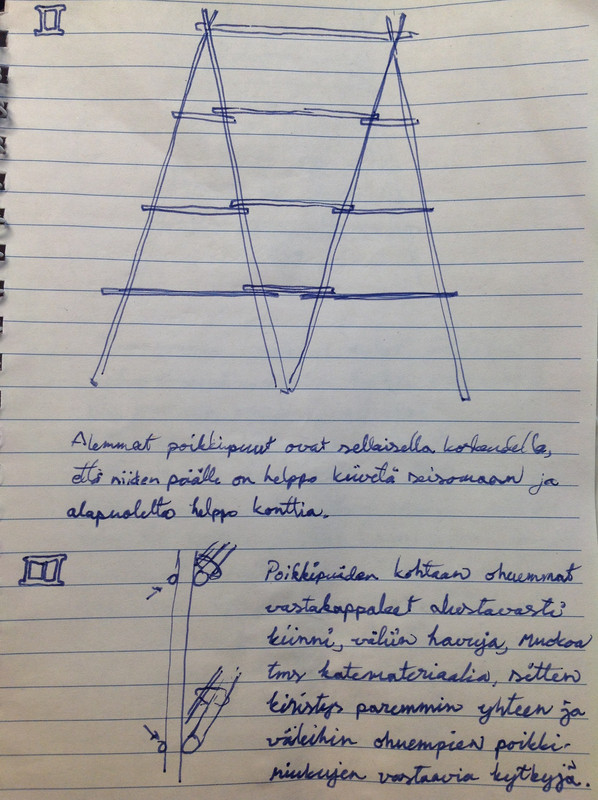 II
Alemmat poikkipuut ovat sellaisella korkeudella,
että niiden päälle on helppo kiivetä seisomaan ja
alapuolelta helppo konttia.
III
Poikkipuiden kohtaan ohuemmat
vastakappaleet alustavasti
kiinni, väliin havuja, ruokoa
tms katemateriaalia, sitten
kiristys paremmin yhteen ja
väleihin ohuempien poikki-
niukujen vastaavia kytkyjä.